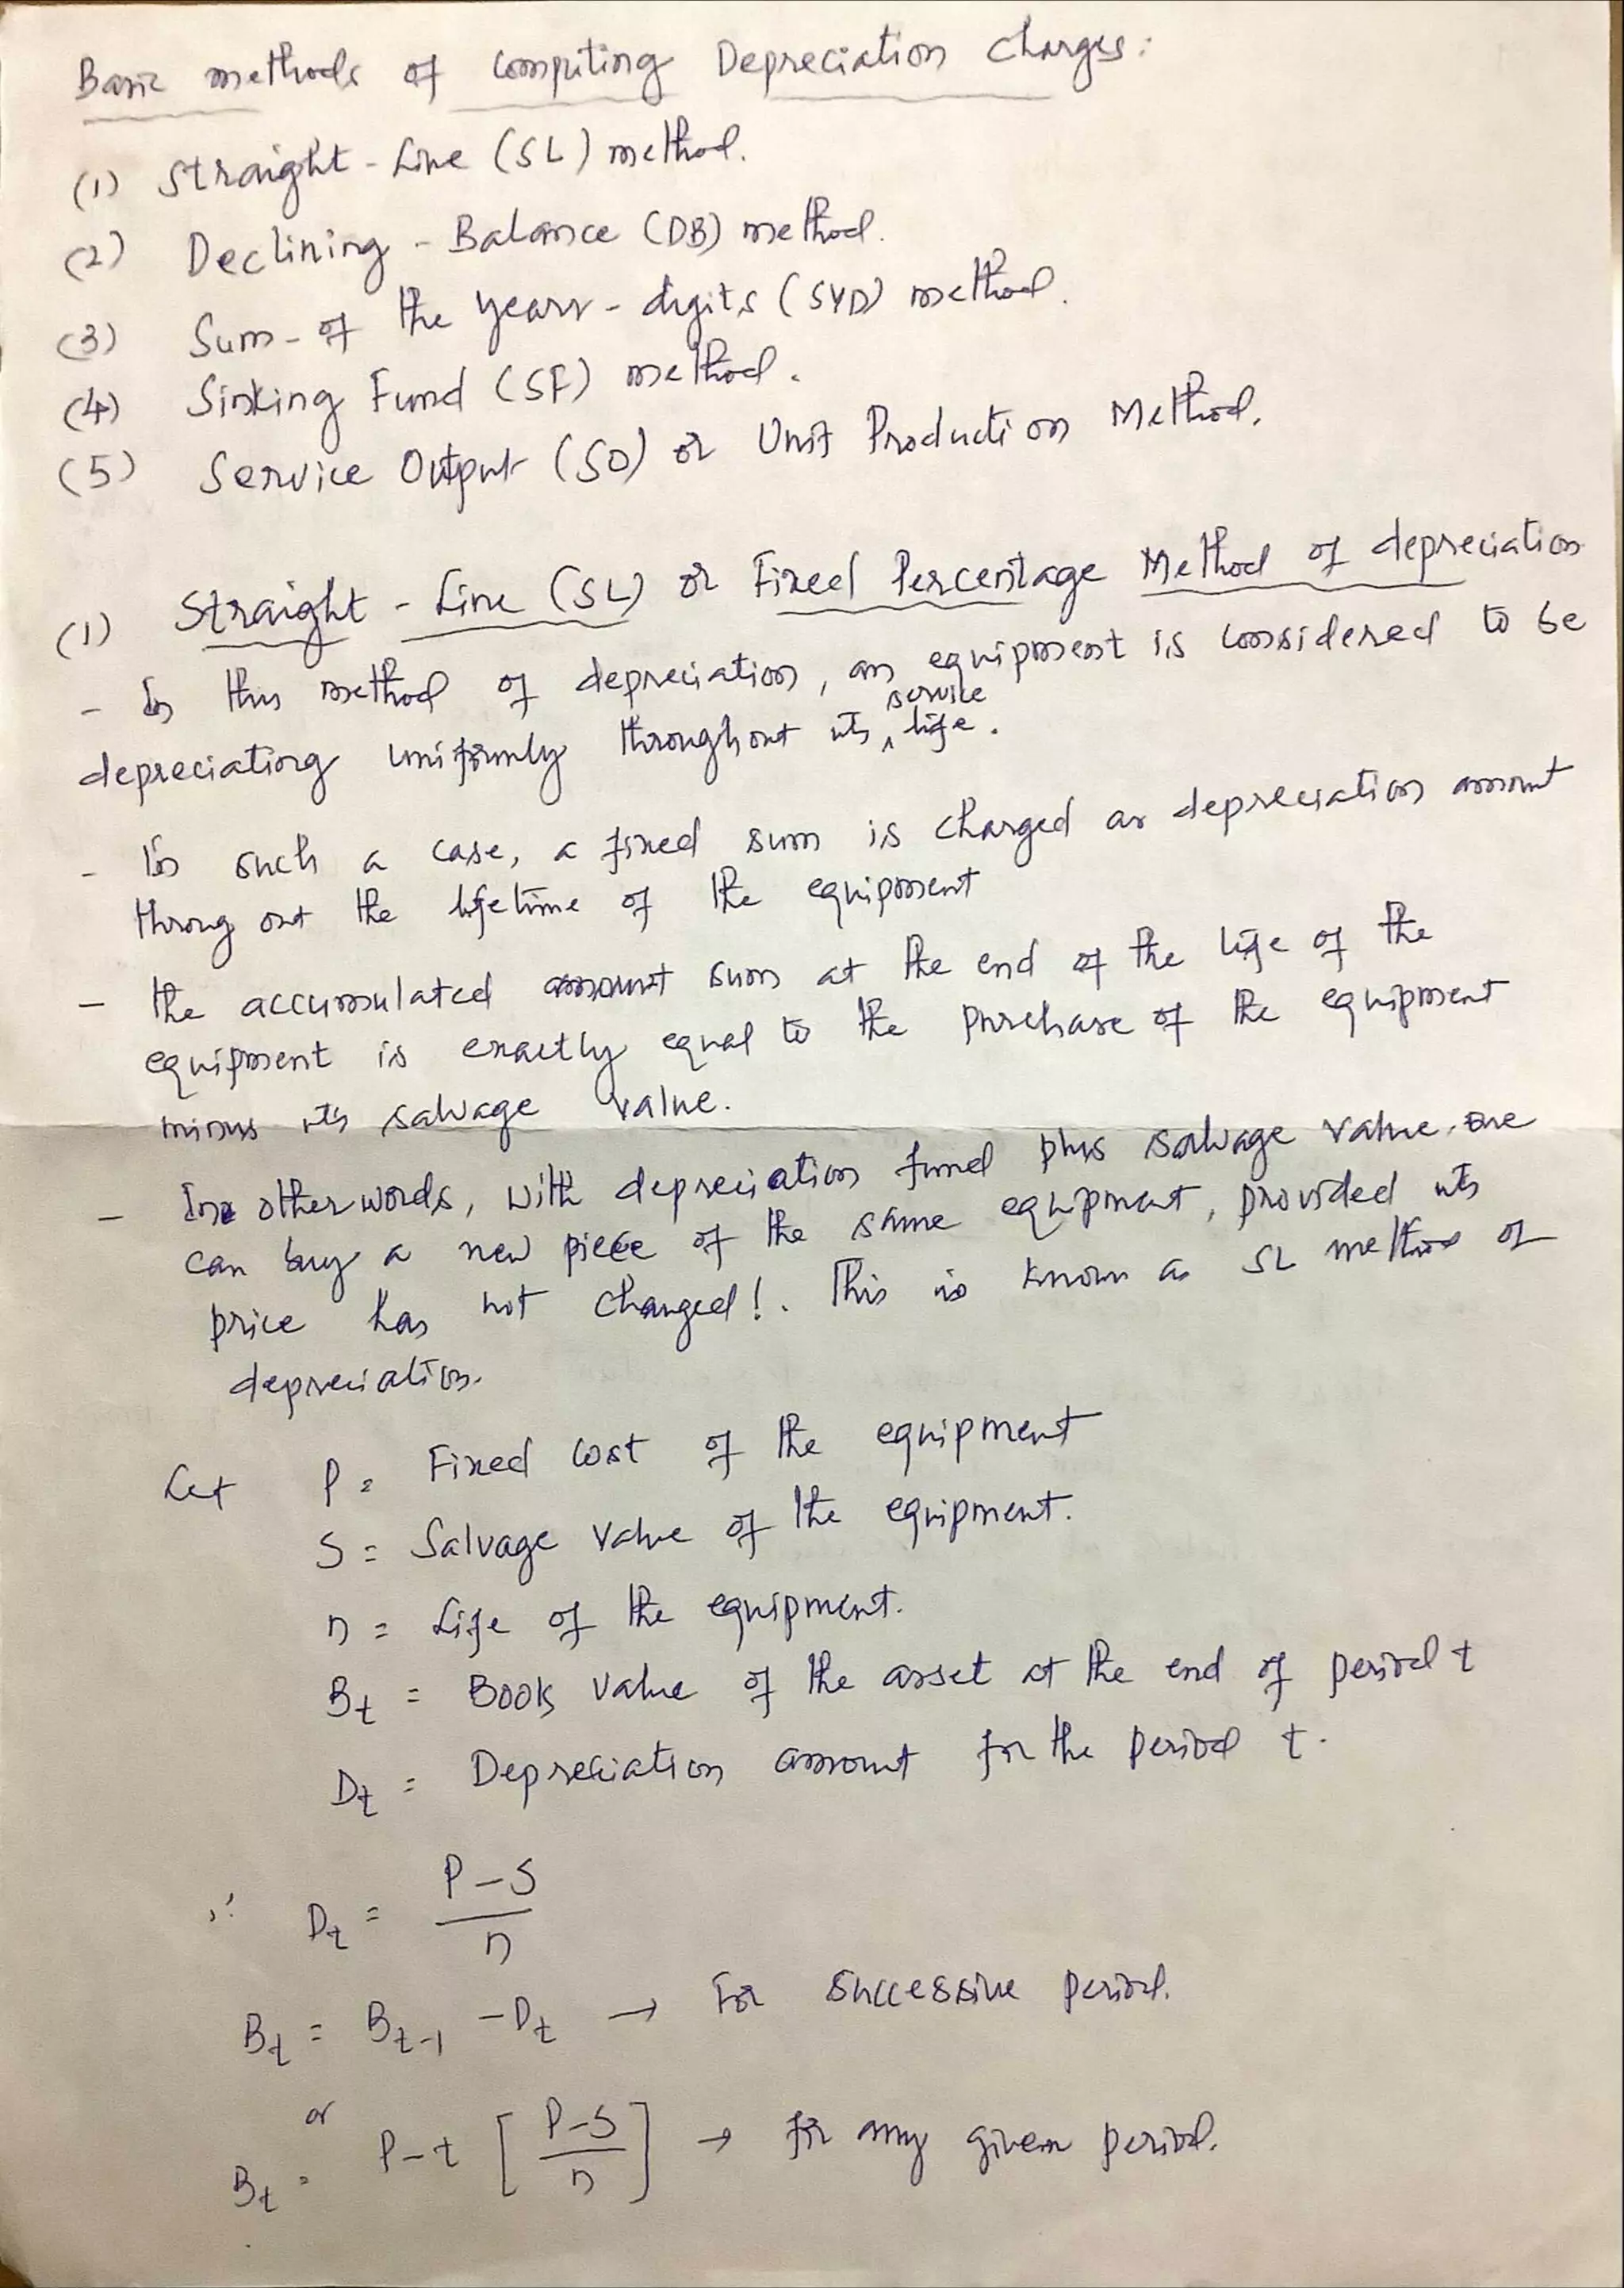 Basic methods of Computing Depreciation charges:
(1) Straight-Line (SL) method.
(2) Declining-Balance (DB) method.
(3) Sum-of the years-digits (SYD) method.
(4) Sinking Fund (SF) method.
(5) Service Output (SO) or Unit Production Method.
(1) Straight-Line (SL) or Fixed Percentage Method of depreciation
- In this method of depreciation, an equipment is considered to be
depreciating uniformly throughout its service life.
- In such a case, a fixed sum is charged as depreciation amount
throug out the lifetime of the equipment
- the accumulated amount sum at the end of the life of the
equipment is exactly equal to the purchase of the equipment
minus it's salvage value.
- In other words, with depreciation fund plus salvage value, one
can buy a new piece of the same equipment, provided its
price has not changed!. This is known as SL method of
depreciation.
Let P = Fixed cost of the equipment
S = Salvage value of the equipment.
n = Life of the equipment.
Bt = Book value of the asset at the end of period t
Dt = Depreciation amount for the period t.
∴ Dt = P-S
n
Bt = Bt-1 - Dt → For successive period.
or
Bt = P-t [P-S/n] → for any given period.